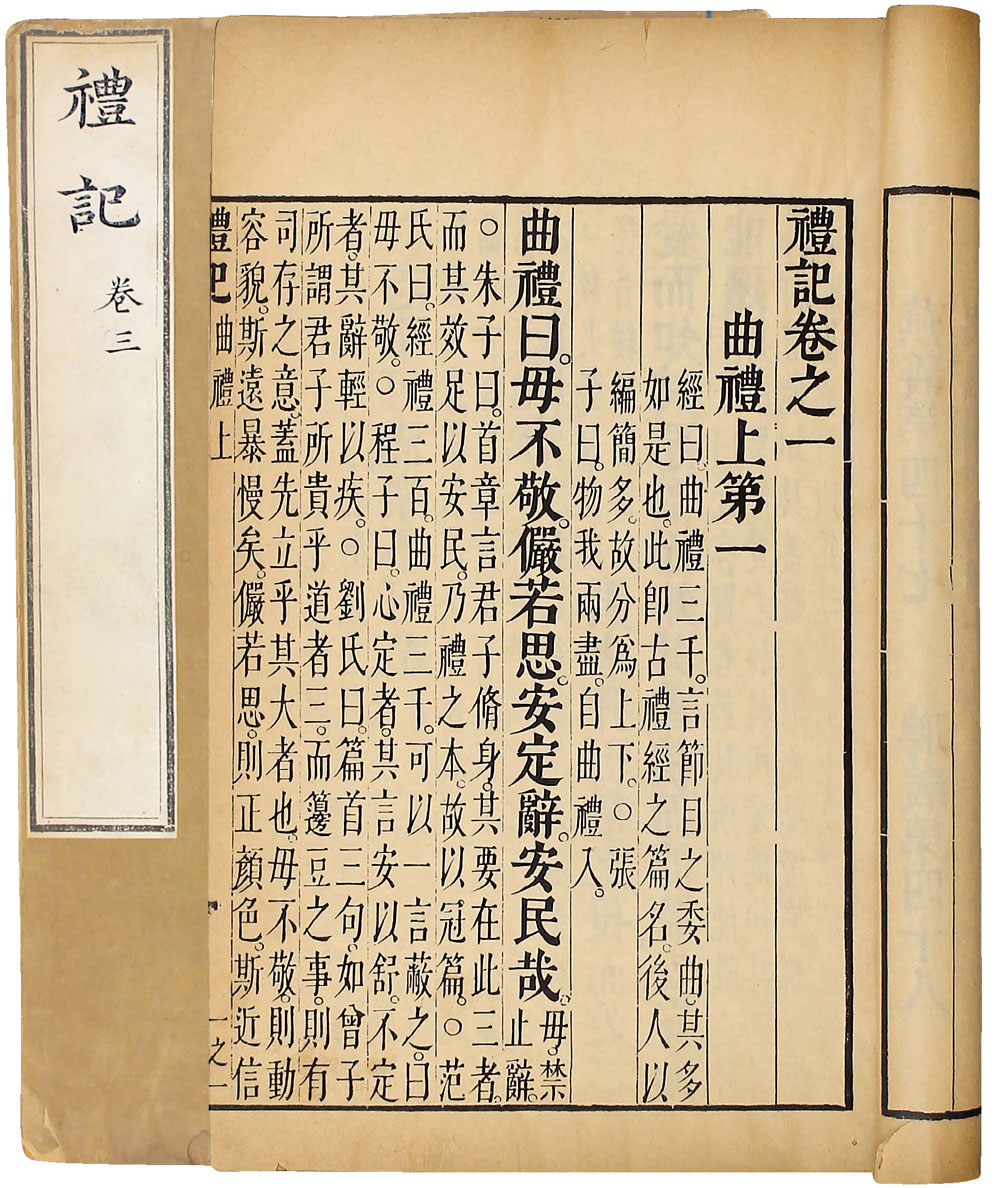 禮記卷之一
曲禮上第一
經曰。曲禮三千。言節目之委曲。其多
如是也。此卽古禮經之篇名。後人以
編簡多。故分爲上下。○張
子曰。物我兩盡。自曲禮入。
曲禮曰。毋不敬。儼若思。安定辭。安民哉。毋。禁
止辭。
○朱子曰。首章言君子脩身。其要在此三者。
而其效足以安民。乃禮之本。故以冠篇。○范
氏曰。經禮三百。曲禮三千。可以一言蔽之。曰
毋不敬。○程子曰。心定者。其言安以舒。不定
者。其辭輕以疾。○劉氏曰。篇首三句。如曾子
所謂君子所貴乎道者三。而籩豆之事。則有
司存之意。蓋先立乎其大者也。毋不敬。則動
容貌。斯遠暴慢矣。儼若思。則正顏色。斯近信
禮記 曲禮上 一之一
禮記 卷三